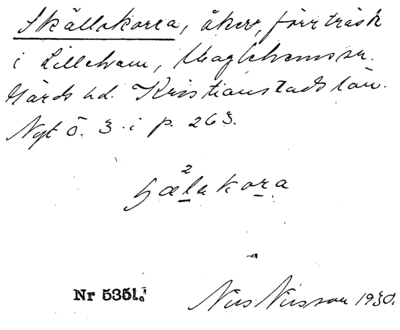 Skällakorra, åker, förr träsk
i Lilleham, Maglehems sr.
Gärds hd. Kristianstads län.
Nyt Ö. 3. i p. 263.
2
hælakora
Nr 5351.
Nils Nilsson 1930.